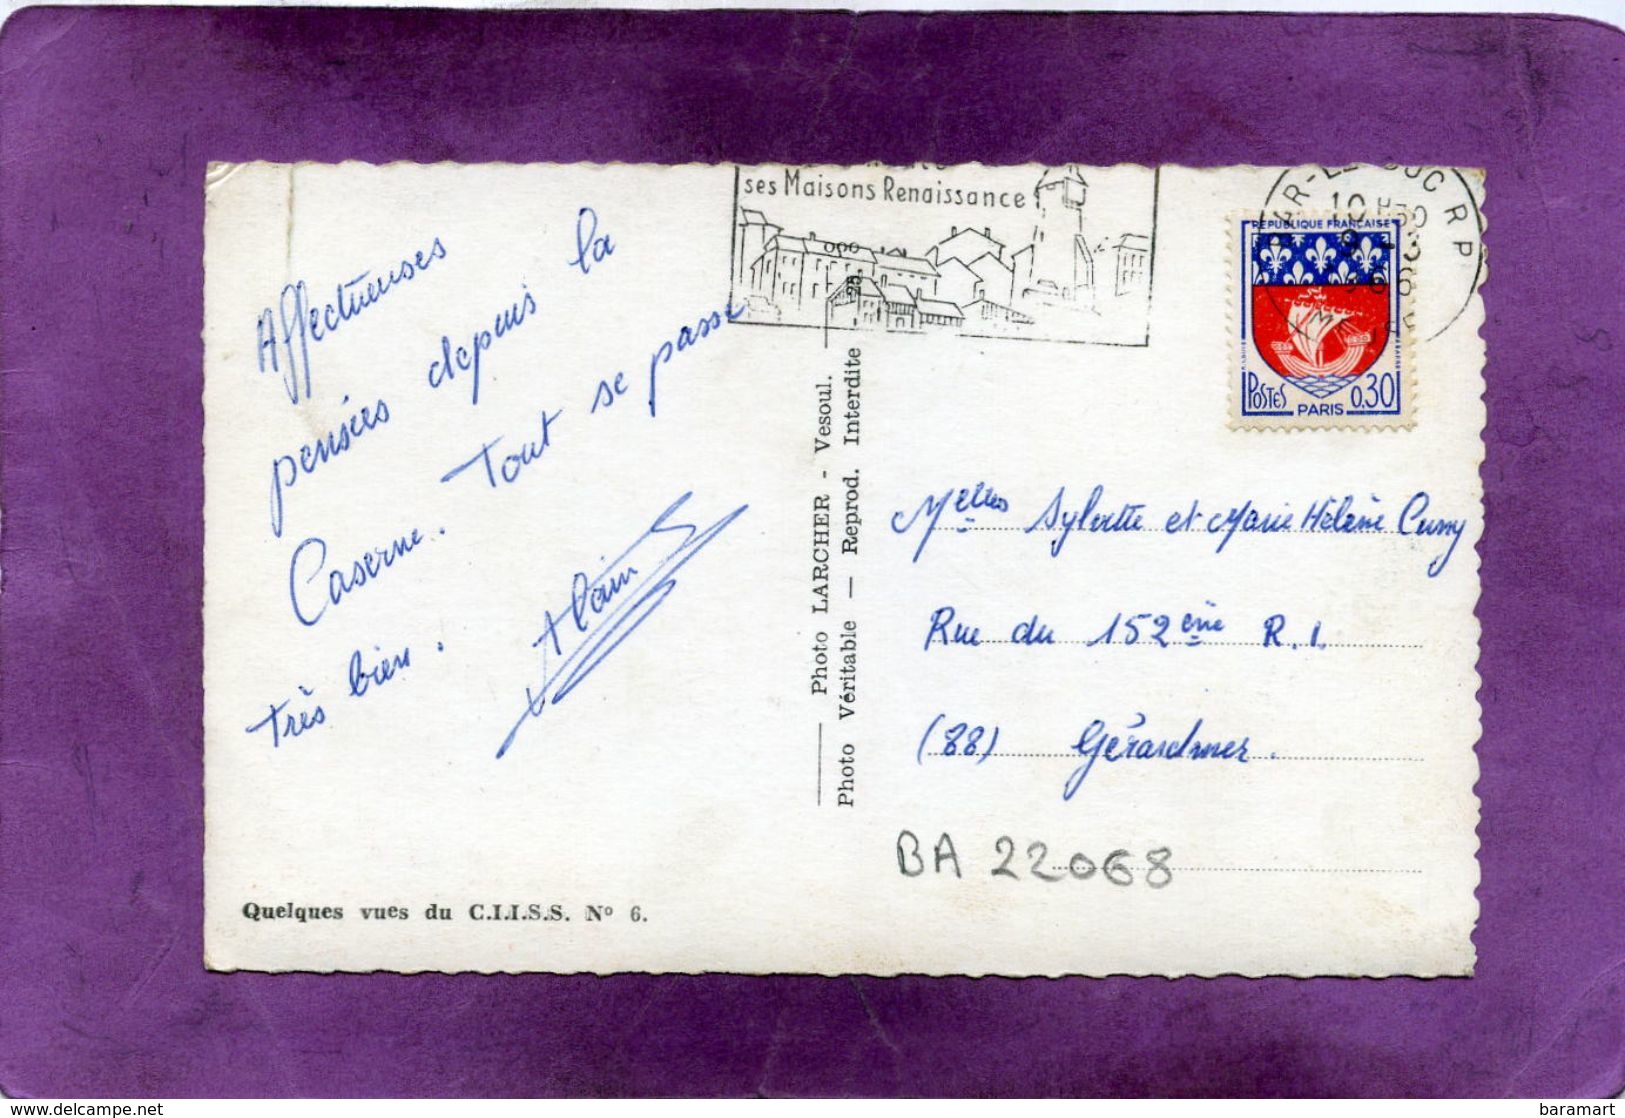 Affectueuses
pensées depuis la
Caserne. Tout se passe
très bien.
Alain
Quelques vues du C.I.I.S.S. N° 6.
Photo LARCHER - Vesoul.
Photo Véritable — Reprod. Interdite
25.
ses Maisons Renaissance
BAR-LE-DUC R P
10 H30
9 - 3
MEUSE
RÉPUBLIQUE FRANÇAISE
POSTES
0,30
PARIS
Melles Sylvette et Marie Hélène Cuny
Rue du 152ème R.I.
(88) Gérardmer.
BA 22068
delcampe.net
baramart